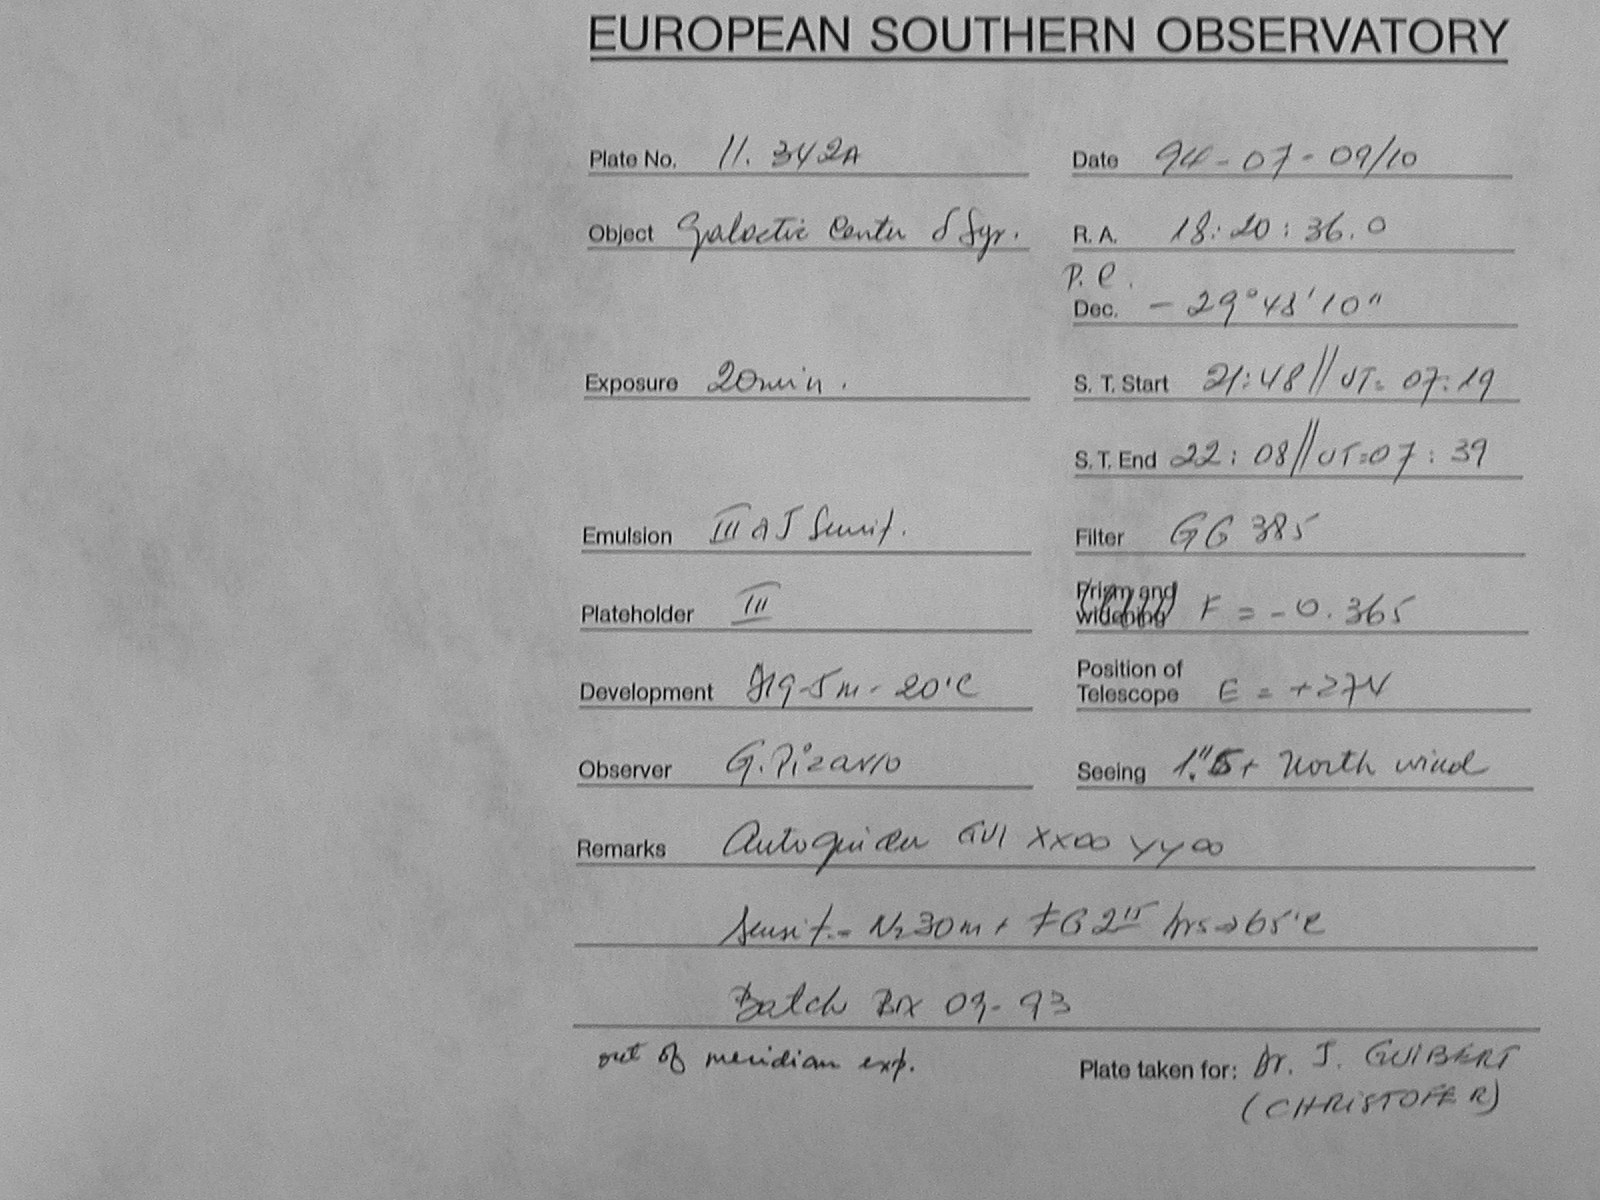 EUROPEAN SOUTHERN OBSERVATORY
Plate No. 11.342A Date 94-07-09/10
Object Galactic Center δ Sgr. R. A. 18:20:36.0
P.C.
Dec. -29°48'10"
Exposure 20min. S. T. Start 21:48//UT=07:19
S. T. End 22:08//UT=07:39
Emulsion III a J Sensit. Filter GG 385
Plateholder III Prism and widening F = -0.365
Development D19-5m-20°C Position of Telescope E = +274
Observer G. Pizarro Seeing 1."5+ North wind
Remarks Autoguider GUI XX00 YY00
Sensit.- N2 30m + FG 2 hrs→65°C
Batch Bx 09-93
out of meridian exp. Plate taken for: Dr. J. GUIBERT
(CHRISTOFER)